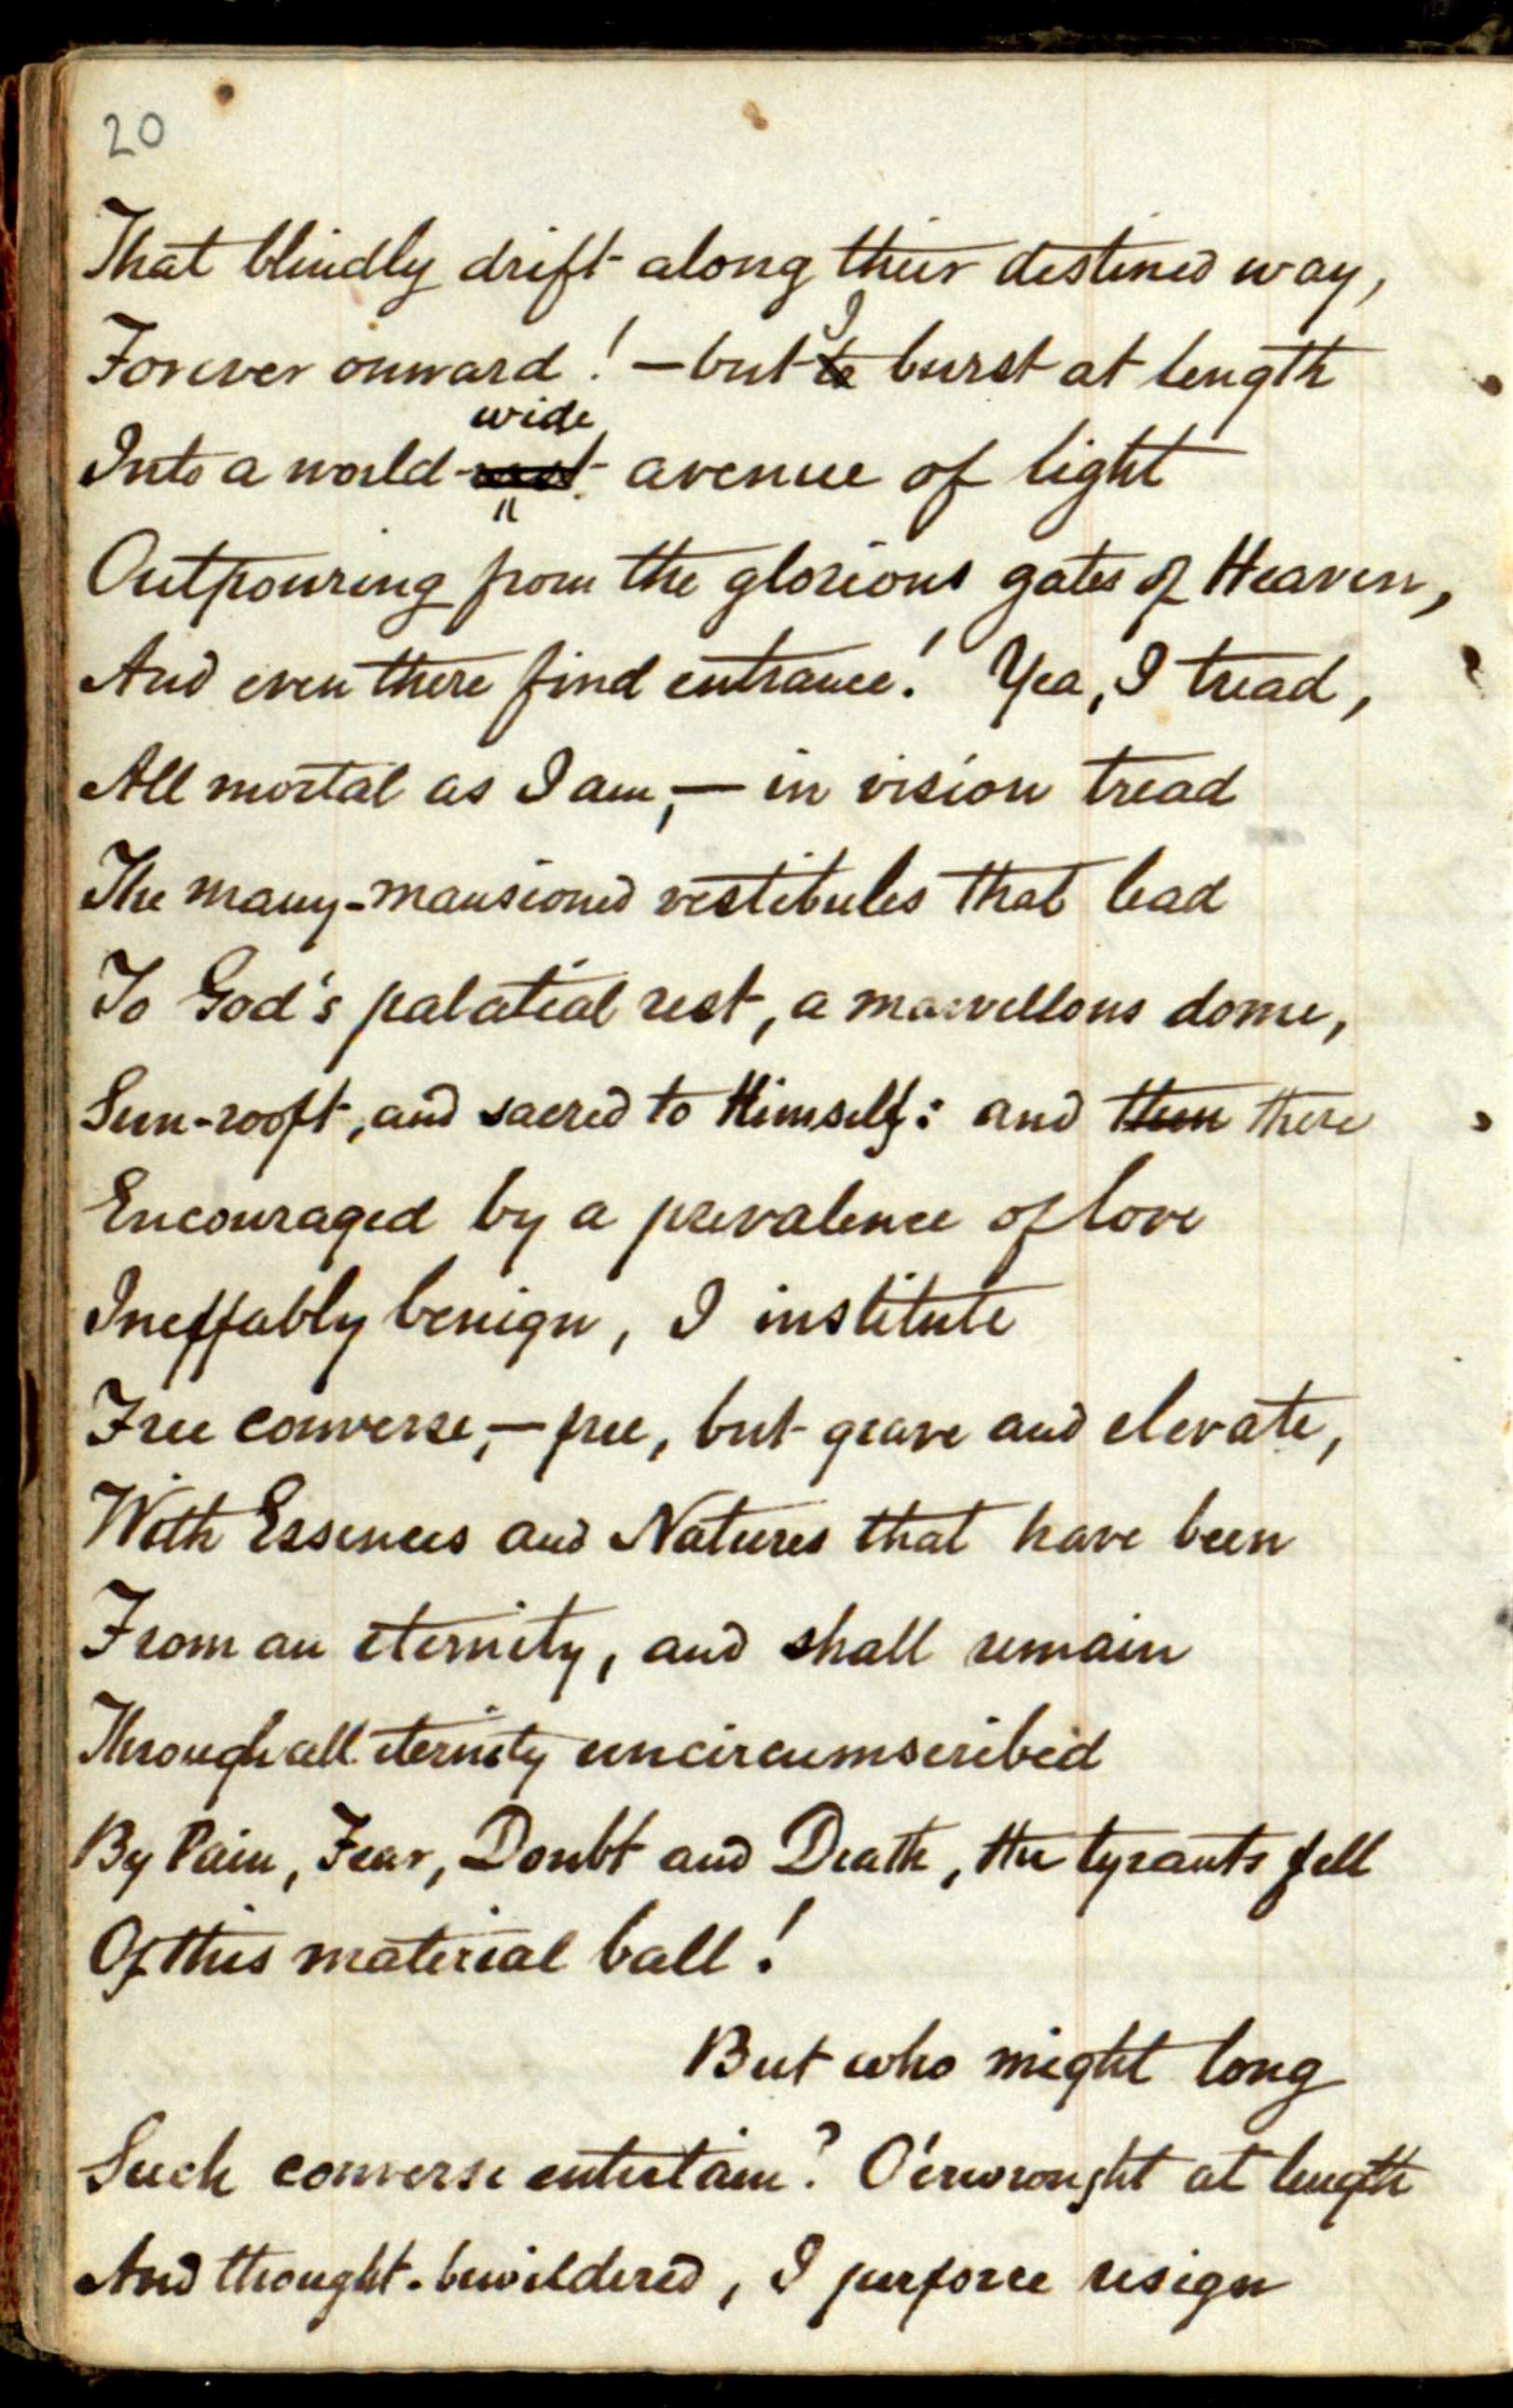 20
That blindly drift along their destined way,
Forever onward! — but I burst at length
wide
Into a world- avenue of light
Outpouring from the glorious gates of Heaven,
And even there find entrance! Yea, I tread,
All mortal as I am, — in vision tread
The many-mansioned vestibules that lead
To God's palatial rest, a marvellous dome,
Sun-rooft, and sacred to Himself: and then there
Encouraged by a prevalence of love
Ineffably benign, I institute
Free converse, — free, but grave and elevate,
With Essences and Natures that have been
From an eternity, and shall remain
Through all eternity uncircumscribed
By Pain, Fear, Doubt and Death, the tyrants fell
Of this material ball!
But who might long
Such converse entertain? O'erwrought at length
And thought-bewildered, I perforce resign